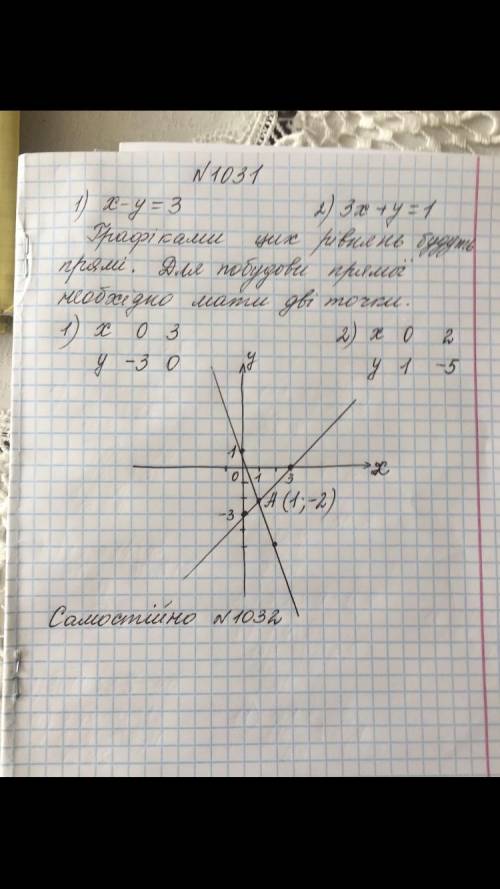 №1031
1) x-y=3 2) 3x+y=1
Графіками цих рівнянь будуть
прямі. Для побудови прямої
необхідно мати дві точки.
1) x 0 3 2) x 0 2
y -3 0 y 1 -5
y
1
0 1 3 x
A (1;-2)
-3
Самостійно №1032